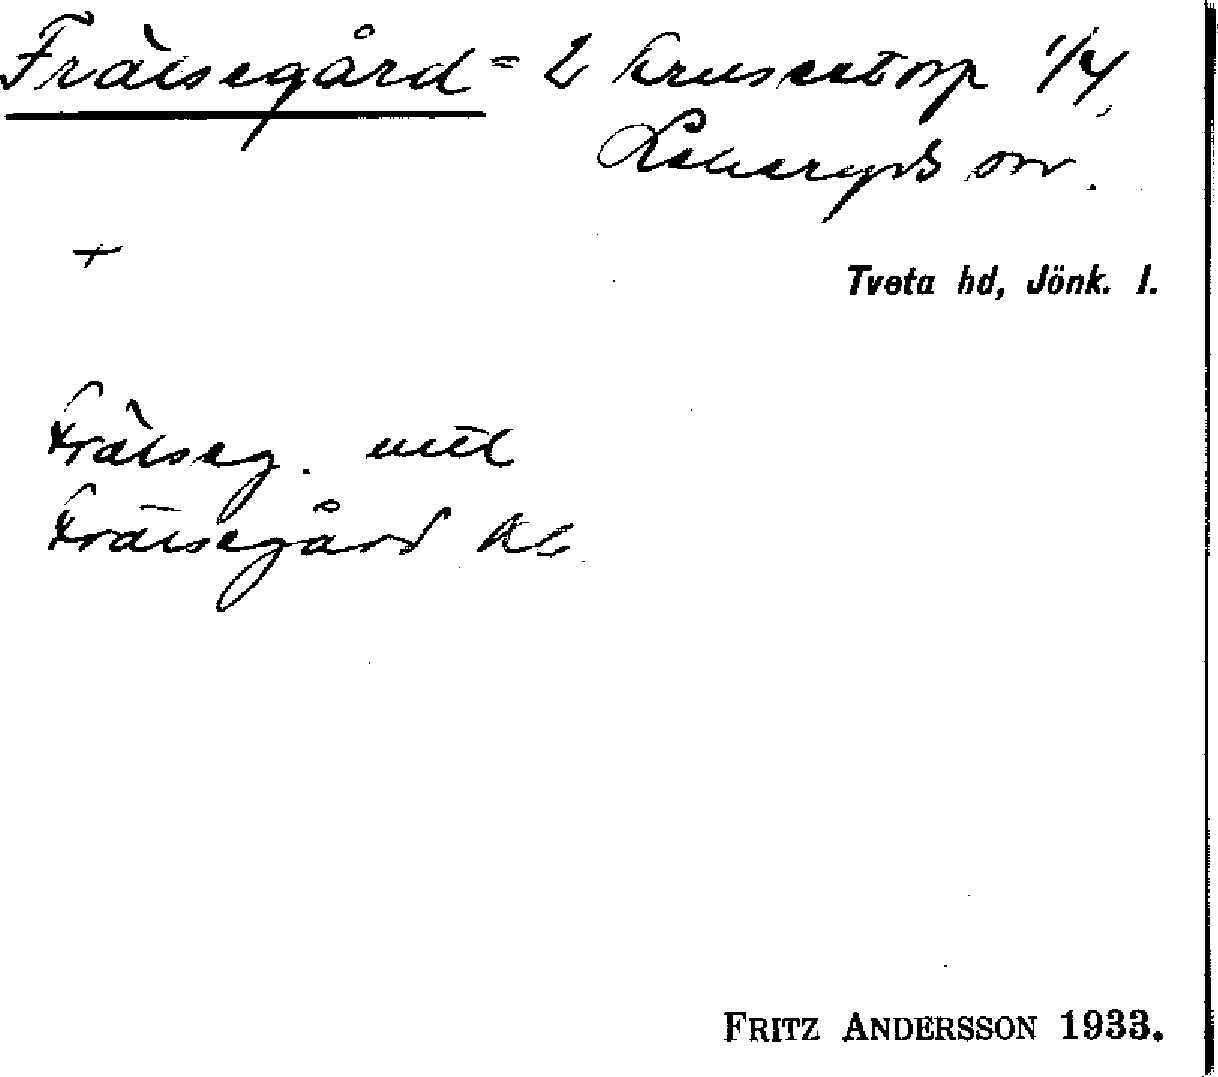 Frälsegård = 2 Krusentorp 1/4,
Lekeryds sn.
+
Tveta hd, Jönk. l.
Frälseg. uttl
Frälsegård
FRITZ ANDERSSON 1933.